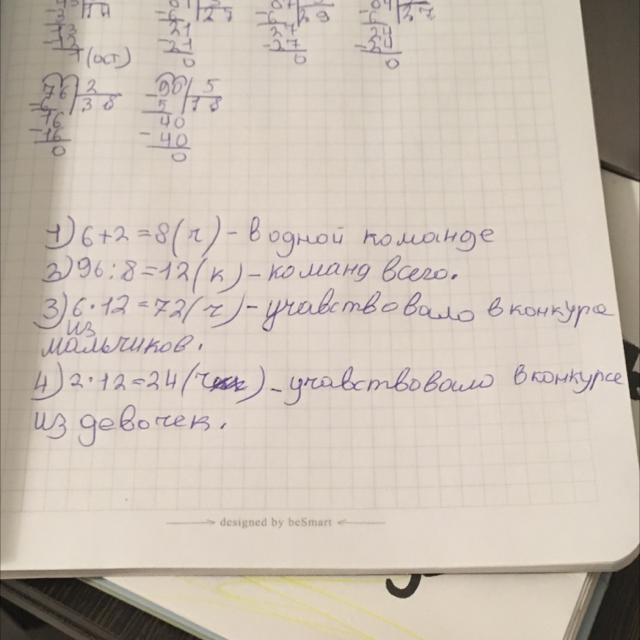 76 2
38
16
-16
0
90 5
5 18
40
-40
0
1) 6+2=8(ч) - в одной команде
2) 96:8=12(к) - команд всего.
3) 6·12=72(ч) - учавствовало в конкурсе
из
мальчиков.
4) 2·12=24(ч) - учавствовало в конкурсе
из девочек.
designed by beSmart